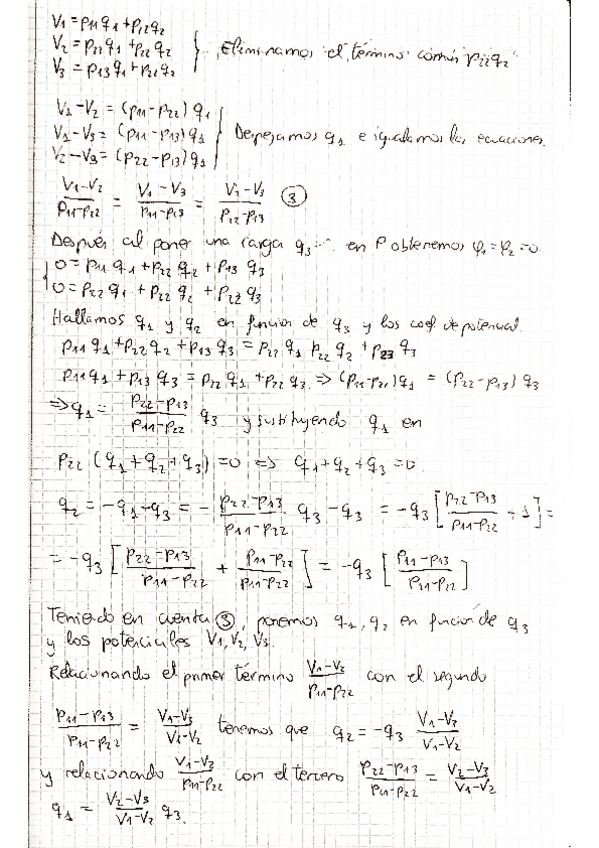 V₁ = p₁₁q₁ + p₂₂q₂
V₂ = p₂₂q₁ + p₂₂q₂ } Eliminamos el término común "p₂₂q₂"
V₃ = p₁₃q₁ + p₂₂q₂
V₁-V₂ = (p₁₁-p₂₂) q₁
V₁-V₃ = (p₁₁-p₁₃) q₁ } Despejamos q₁ e igualamos las ecuaciones.
V₂-V₃ = (p₂₂-p₁₃) q₁
(V₁-V₂)/(p₁₁-p₂₂) = (V₁-V₃)/(p₁₁-p₁₃) = (V₂-V₃)/(p₂₂-p₁₃) ③
Después al poner una carga q₃ en P obtenemos φ₁=φ₂=0
{ 0 = p₁₁ q₁ + p₂₂ q₂ + p₁₃ q₃
0 = p₂₂ q₁ + p₂₂ q₂ + p₂₂ q₃
Hallamos q₁ y q₂ en funcion de q₃ y los coef de potencial.
p₁₁q₁ + p₂₂q₂ + p₁₃q₃ = p₂₂q₁ p₂₂q₂ + p₂₃ q₃
p₁₁q₁ + p₁₃q₃ = p₂₂q₁ + p₂₂q₃ ⇒ (p₁₁-p₂₂)q₁ = (p₂₂-p₁₃) q₃
⇒ q₁ = (p₂₂-p₁₃)/(p₁₁-p₂₂) q₃ y sustituyendo q₁ en
p₂₂ (q₁+q₂+q₃) = 0 ⇒ q₁+q₂+q₃ = 0.
q₂ = -q₁-q₃ = - (p₂₂-p₁₃)/(p₁₁-p₂₂) q₃ - q₃ = -q₃ [(p₂₂-p₁₃)/(p₁₁-p₂₂) + 1] =
= -q₃ [(p₂₂-p₁₃)/(p₁₁-p₂₂) + (p₁₁-p₂₂)/(p₁₁-p₂₂)] = -q₃ [(p₁₁-p₁₃)/(p₁₁-p₂₂)]
Teniendo en cuenta ③, ponemos q₁, q₂ en función de q₃
y los potenciales V₁, V₂, V₃.
Relacionando el primer término (V₁-V₂)/(p₁₁-p₂₂) con el segundo
(p₁₁-p₁₃)/(p₁₁-p₂₂) = (V₁-V₃)/(V₁-V₂) tenemos que q₂ = -q₃ (V₁-V₃)/(V₁-V₂)
y relacionando (V₁-V₂)/(p₁₁-p₂₂) con el tercero (p₂₂-p₁₃)/(p₁₁-p₂₂) = (V₂-V₃)/(V₁-V₂)
q₁ = (V₂-V₃)/(V₁-V₂) q₃.